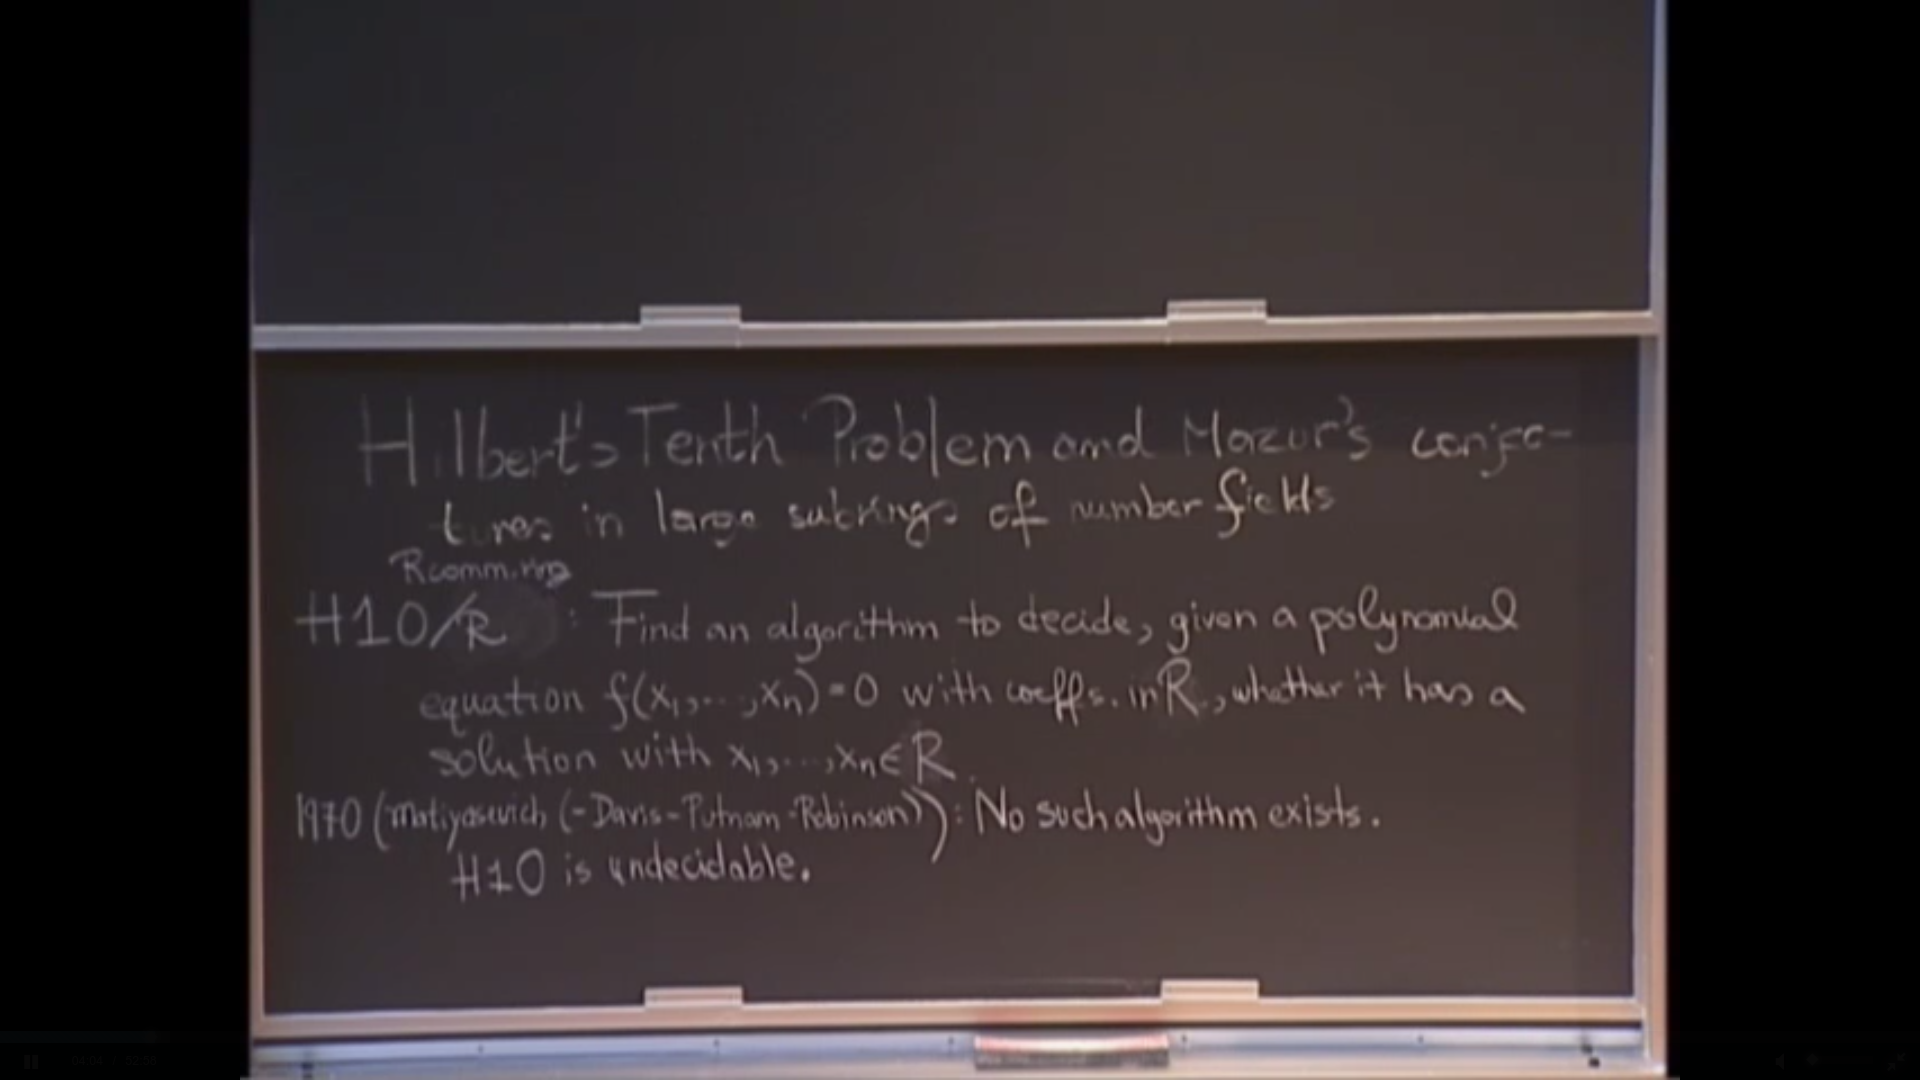 Hilbert's Tenth Problem and Mazur's conjec-
tures in large subrings of number fields
R comm. ring
H10/R : Find an algorithm to decide, given a polynomial
equation f(x₁,...,xₙ)=0 with coeffs. in R, whether it has a
solution with x₁,...,xₙ∈R.
1970 (Matiyasevich (-Davis-Putnam-Robinson)): No such algorithm exists.
H10 is undecidable.